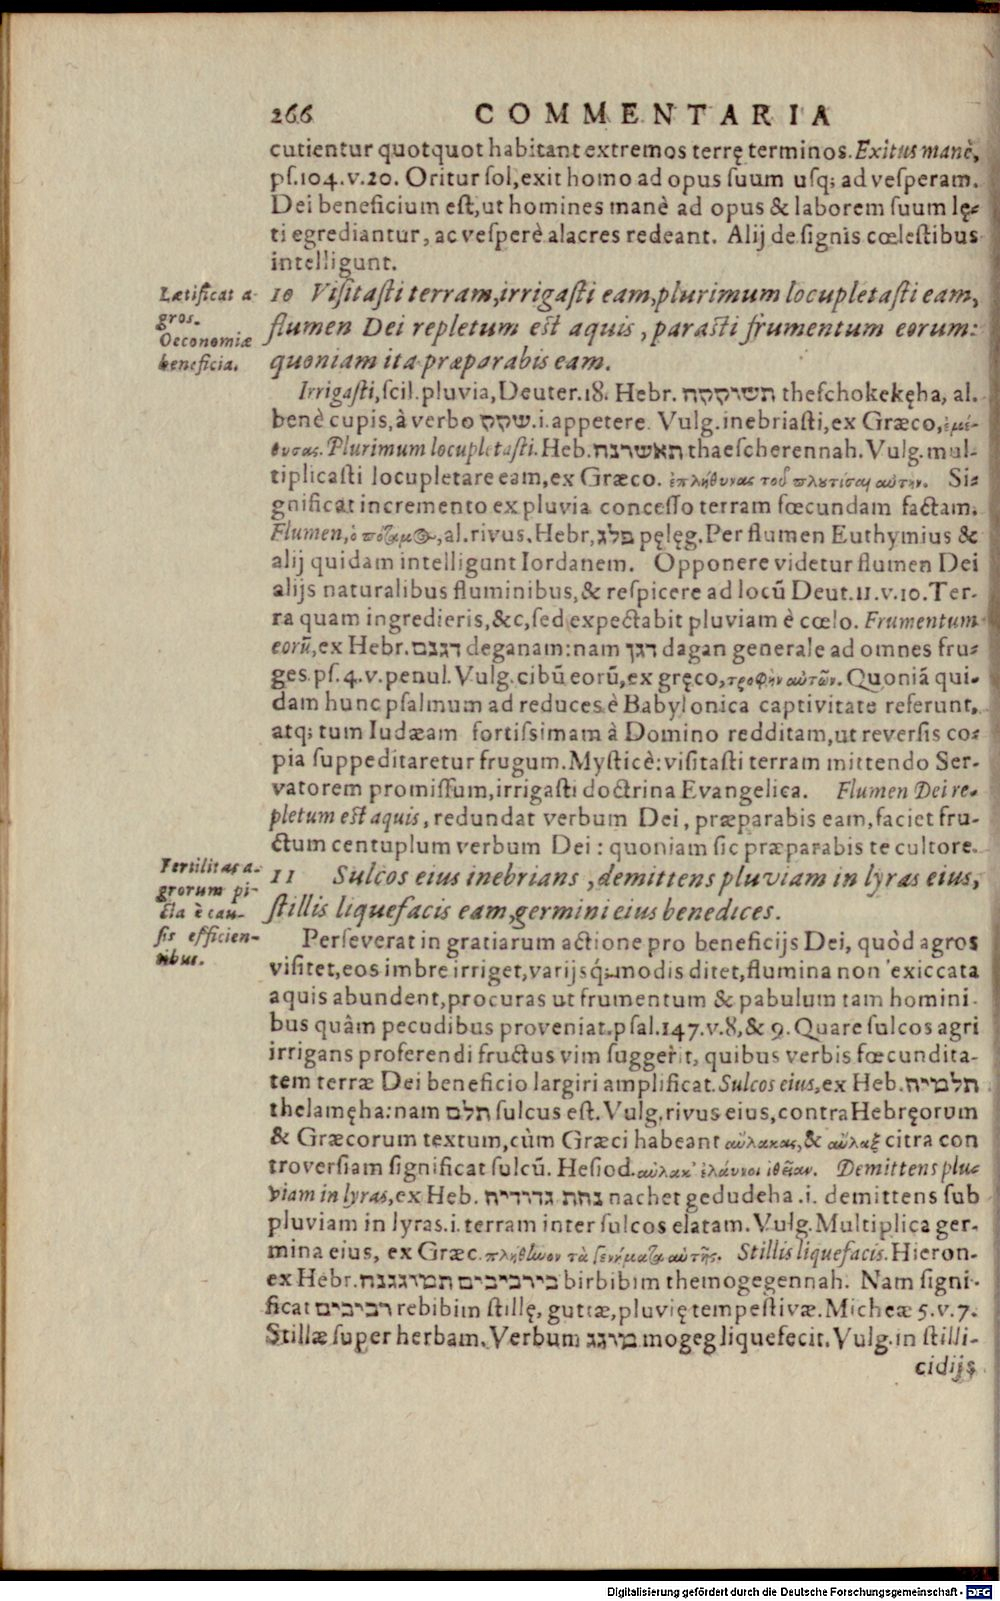 266 COMMENTARIA
cutientur quotquot habitant extremos terrę terminos. Exitus manè,
ps.104.v.20. Oritur sol, exit homo ad opus suum usq; ad vesperam.
Dei beneficium est, ut homines manè ad opus & laborem suum lę-
ti egrediantur, ac vesperè alacres redeant. Alij de signis cœlestibus
intelligunt.
Lætificat a-
gros.
Oeconomiæ
beneficia.
10 Visitasti terram, irrigasti eam, plurimum locupletasti eam,
flumen Dei repletum est aquis, parasti frumentum eorum:
quoniam ita præparabis eam.
Irrigasti, scil. pluvia, Deuter.18. Hebr. תשוקקה theschokekęha, al.
benè cupis, à verbo שקק .i. appetere. Vulg. inebriasti, ex Græco, ἐμέ-
θυσας. Plurimum locupletasti. Heb. תאשרנה thaescherennah. Vulg. mul-
tiplicasti locupletare eam, ex Græco. ἐπλήθυνας τοῦ πλουτίσαι αὐτήν. Si-
gnificat incremento ex pluvia concesso terram fœcundam factam.
Flumen, ὁ ποταμὸς, al. rivus. Hebr, פלג pęlęg. Per flumen Euthymius &
alij quidam intelligunt Iordanem. Opponere videtur flumen Dei
alijs naturalibus fluminibus, & respicere ad locū Deut.11.v.10. Ter-
ra quam ingredieris, &c, sed expectabit pluviam è cœlo. Frumentum
eorū, ex Hebr. דגנם deganam: nam דגן dagan generale ad omnes fru-
ges. ps.4.v.penul. Vulg. cibū eorū, ex gręco, τροφὴν αὐτῶν. Quoniā qui-
dam hunc psalmum ad reduces è Babylonica captivitate referunt,
atq; tum Iudæam fortissimam à Domino redditam, ut reversis co-
pia suppeditaretur frugum. Mysticè: visitasti terram mittendo Ser-
vatorem promissum, irrigasti doctrina Evangelica. Flumen Dei re-
pletum est aquis, redundat verbum Dei, præparabis eam, faciet fru-
ctum centuplum verbum Dei: quoniam sic præparabis te cultore.
Fertilitas a-
grorum pi-
cta è cau-
sis efficien-
tibus.
11 Sulcos eius inebrians, demittens pluviam in lyras eius,
stillis liquefacis eam, germini eius benedices.
Perseverat in gratiarum actione pro beneficijs Dei, quòd agros
visitet, eos imbre irriget, varijsq; modis ditet, flumina non exiccata
aquis abundent, procuras ut frumentum & pabulum tam homini-
bus quâm pecudibus proveniat. psal.147.v.8,& 9. Quare sulcos agri
irrigans proferendi fructus vim suggerit, quibus verbis fœcundita-
tem terræ Dei beneficio largiri amplificat. Sulcos eius, ex Heb. תלמיה
thelamęha: nam תלם sulcus est. Vulg, rivus eius, contra Hebręorum
& Græcorum textum, cùm Græci habeant αὔλακας, & αὖλαξ citra con
troversiam significat sulcū. Hesiod. αὔλακ' ἐλαύνοι ἰθεῖαν. Demittens plu-
viam in lyras, ex Heb. נחת גדודיה nachet gedudeha .i. demittens sub
pluviam in lyras .i. terram inter sulcos elatam. Vulg. Multiplica ger-
mina eius, ex Græc. πλήθυνον τὰ γενήματα αὐτῆς. Stillis liquefacis. Hieron-
ex Hebr. בירביבים תמוגגנה birbibim themogegennah. Nam signi-
ficat רביבים rebibim stillę, guttæ, pluvię tempestivæ. Micheæ 5.v.7.
Stillæ super herbam. Verbum מוגג mogeg liquefecit. Vulg. in stilli-
cidijs
Digitalisierung gefördert durch die Deutsche Forschungsgemeinschaft - DFG